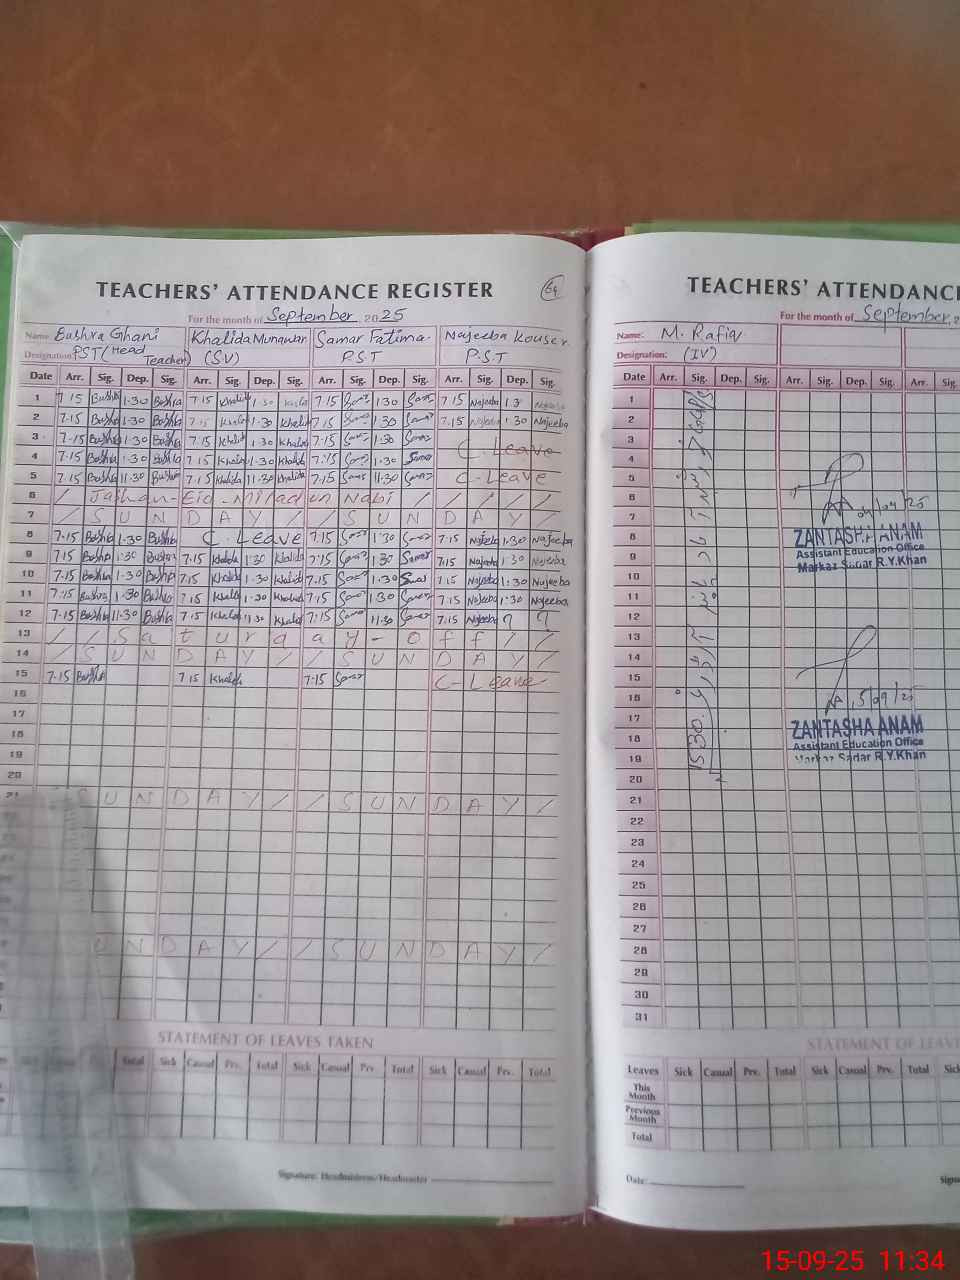 TEACHERS' ATTENDANCE REGISTER 64
For the month of September 2025
Name Bushra Ghani Khalida Munawar Samar Fatima Najeeba Kouser
Designation: PST (Head Teacher) (SV) P.S.T P.S.T
Date Arr. Sig. Dep. Sig. Arr. Sig. Dep. Sig. Arr. Sig. Dep. Sig. Arr. Sig. Dep. Sig.
1 7.15 Bushra 1.30 Bushra 7.15 Khalida 1.30 7.15 Samar 1.30 Samar 7.15 Najeeba 1.3 Najeeba
2 7.15 Bushra 1.30 Bushra 7.15 Khalida 1.30 Khalida 7.15 Samar 1.30 Samar 7.15 Najeeba 1.30 Najeeba
3 7.15 Bushra 1.30 Bushra 7.15 Khalida 1.30 Khalida 7.15 Samar 1.30 Samar C. Leave
4 7.15 Bushra 1.30 Bushra 7.15 Khalida 1.30 Khalida 7.15 Samar 1.30 Samar
5 7.15 Bushra 11.30 Bushra 7.15 Khalida 11.30 Khalida 7.15 Samar 11.30 Samar C-Leave
6 / Jashan-Eid-Milad un Nabi / / / / /
7 / S U N D A Y / / S U N D A Y /
8 7.15 Bushra 1.30 Bushra C. Leave 7.15 Samar 1.30 Samar 7.15 Najeeba 1.30 Najeeba
9 7.15 Bushra 1.30 Bushra 7.15 Khalida 1.30 Khalida 7.15 Samar 1.30 Samar 7.15 Najeeba 1.30 Najeeba
10 7.15 Bushra 1.30 Bushra 7.15 Khalida 1.30 Khalida 7.15 Samar 1.30 Samar 7.15 Najeeba 1.30 Najeeba
11 7.15 Bushra 1.30 Bushra 7.15 Khalida 1.30 Khalida 7.15 Samar 1.30 Samar 7.15 Najeeba 1.30 Najeeba
12 7.15 Bushra 11.30 Bushra 7.15 Khalida 11.30 Khalida 7.15 Samar 11.30 Samar 7.15 Najeeba ? ?
13 / / S a t u r d a y - o f f / /
14 / S U N D A Y / / S U N D A Y /
15 7.15 Bushra 7.15 Khalida 7.15 Samar C-Leave
16
17
18
19
20
21 S U N D A Y / / S U N D A Y /
U N D A Y / / S U N D A Y /
STATEMENT OF LEAVES TAKEN
Total Sick Casual Prv. Total Sick Casual Prv. Total Sick Casual Prv. Total
Signature: Headmistress/Headmaster
TEACHERS' ATTENDANC
For the month of September, 2
Name: M. Rafiq
Designation: (IV)
Date Arr. Sig. Dep. Sig. Arr. Sig. Dep. Sig. Arr. Sig.
1
2
3
4
5
6
7
8
9
10
11
12
13
14
15
16
17
18
19
20
21
22
23
24
25
26
27
28
29
30
31
04/09/25
ZANTASHA ANAM
Assistant Education Office
Markaz Sadar R.Y.Khan
15/09/25
ZANTASHA ANAM
Assistant Education Office
Markaz Sadar R.Y.Khan
STATEMENT OF LEAV
Leaves Sick Casual Prv. Total Sick Casual Prv. Total Sick
This Month
Previous Month
Total
Date: Signa
15-09-25 11:34